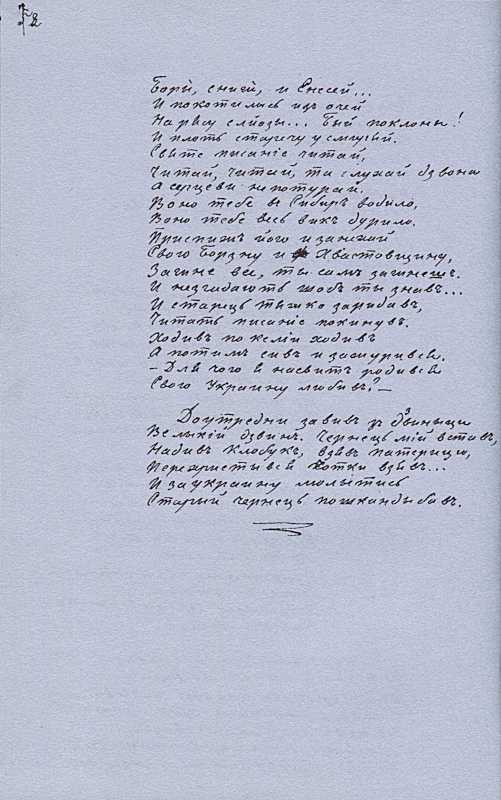 78
Боры, сниги, и Енесей...
И покотились изъ очей
На рясу слёзы... Бый поклоны!
И плоть старечу усмыряй.
Святе писаніе читай,
Читай, читай, та слухай дзвона
А серцеви не потурай.
Воно тебе въ Сибиръ водило,
Воно тебе весь викъ дурило.
Приспижъ його и занехай
Свою Борзну и Хвастовщину,
Загине все, ты самъ загинешъ.
И незгадають щобъ ты знавъ...
И старець тяжко заридавъ,
Читать писаніе покинувъ.
Ходивъ по келіи ходивъ
А потимъ сивъ и зажурився.
— Для чого я на свитъ родився
Свою Украину любивъ? —
До утрени завивъ зъ дзвиныци
Великій дзвинъ. Чернець мій вставъ,
Надивъ клобукъ, взявъ патерицю,
Перехристывся чотки взявъ...
И за украину молытись
Старый чернець пошкандыбавъ.